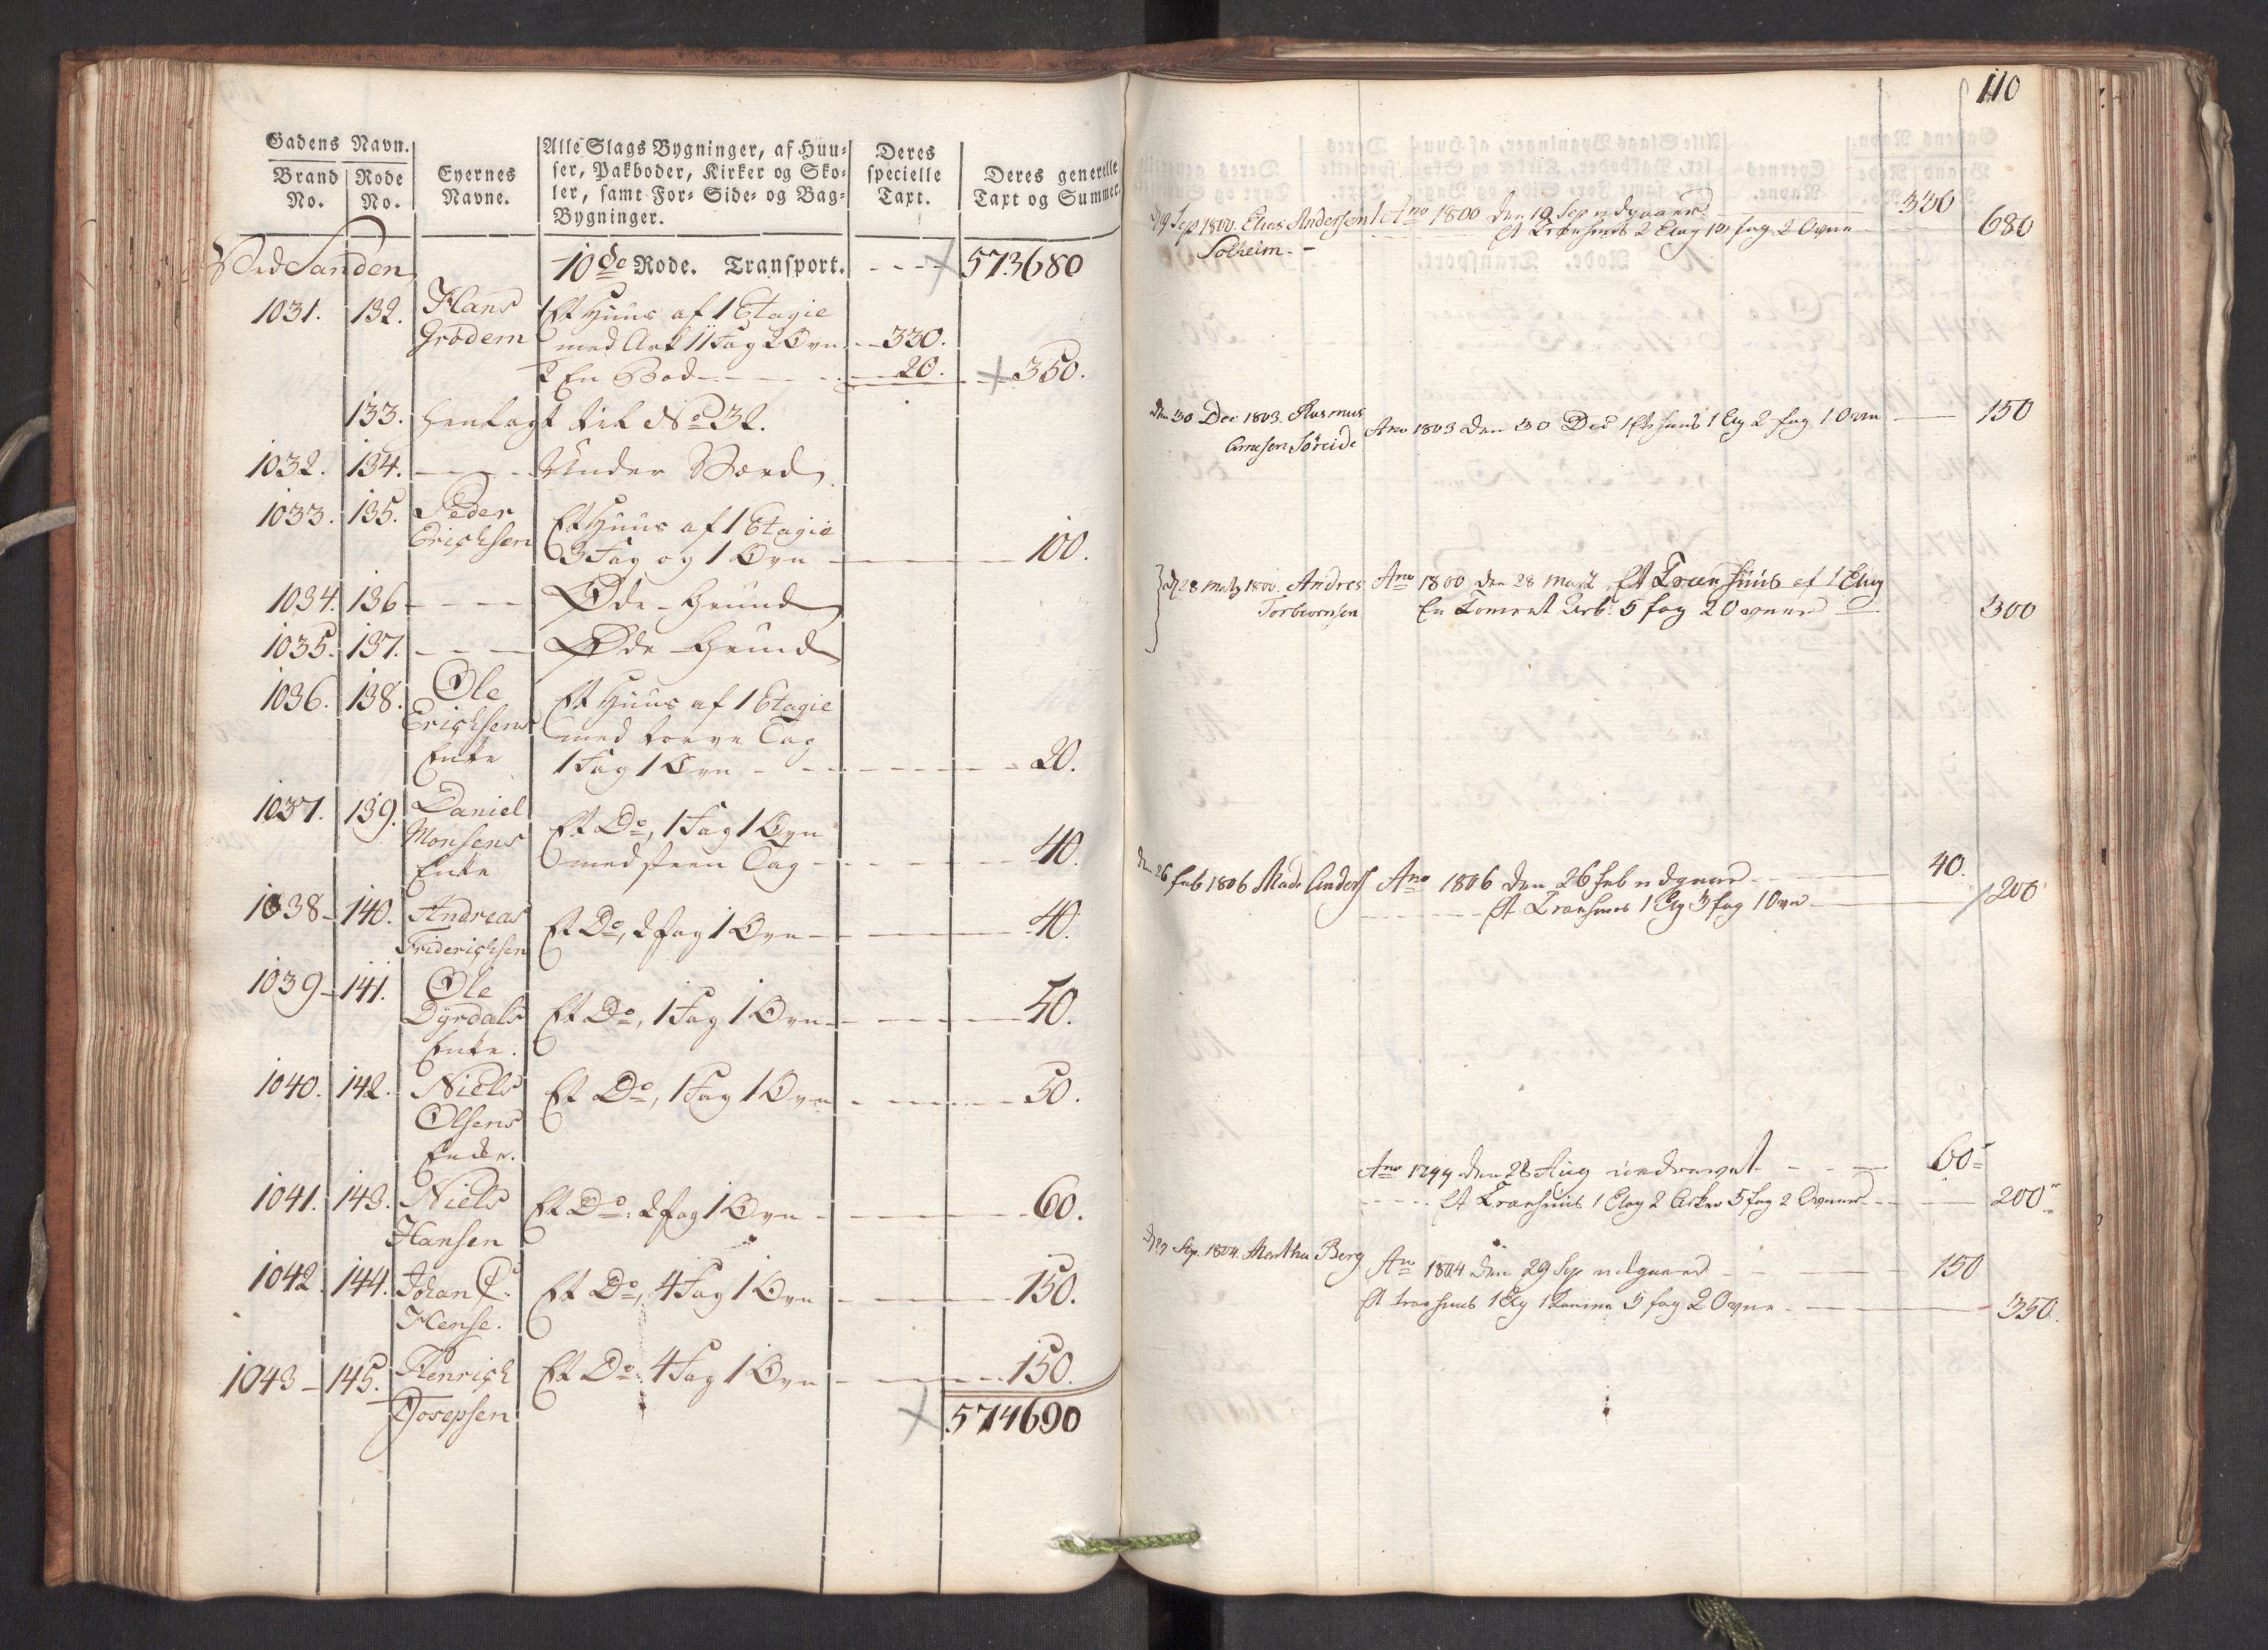 Gadens Navn.
Brand No. | Rode No. | Eyernes Navne. | Alle Slags Bygninger, af Huu-
ser, Pakboder, Kirker og Sko-
ler, samt For- Side- og Bag-
Bygninger. | Deres specielle Taxt. | Deres generelle Taxt og Summer.
Ved Sanden 10de Rode. Transport. 573680
1031. 132. Hans Et Huus af 1 Etagie
Grödem med Ark 11 Fag 2 Ovn 330.
2 En Bod 20. 350.
133. henlagt til No 32.
1032. 134. Under Værd
1033. 135. Peder Et Huus af 1 Etagie
Erichsen 3 Fag og 1 Ovn 100.
1034. 136 Øde-Grund
1035. 137. Øde-Grund
1036. 138. Ole Et Huus af 1 Etagie
Erichsens med torve Tag
Enke 1 Fag 1 Ovn 20.
1037. 139. Daniel Et Do, 1 Fag 1 Ovn
Monsens med steen Tag 40.
Enke
1038 140. Andreas Et Do, 2 fag 1 Ovn 40.
Friderichsen
1039 141. Ole
Dÿrdals Et Do, 1 Fag 1 Ovn 50.
Enke.
1040. 142. Niels Et Do, 1 Fag 1 Ovn 50.
Olsens
Enke.
1041. 143. Niels Et Do: 2 fag 1 Ovn 60.
Hansen
1042 144. Johan C. Et Do, 4 Fag 1 Ovn 150.
Hense.
1043 145. Henrich Et Do: 4 Fag 1 Ovn 150.
Josepsen 574690
110
d 19 Sep 1800. Elias Andersen Ano 1800 den 19 Sep udgaaer 330
Solheim. Et Træehuus 2 Etag 10 fag 2 Ovne 680
den 30 Dec 1803. Rasmus Ano 1803 den 30 Dec 1 Et huus 1 Etg 2 fag 1 Ovn 150
Arnesen Söreide
d 28 Martz 1800. Andres Ano 1800 den 28 Mart Et Træehuus af 1 Etag
Torbiørnsen En Tømret Ark 5 fag 2 Ovner 300
den 26 feb 1806 Mads Anders Ano 1806 den 26 feb udgaaer 40.
Et Træehuus 1 Etg 3 fag 1 Ovn 200
Ano 1799 den 28 Aug 60
Et Træehuus 1 Etag 2 Arker 5 fag 2 Ovner 200
d 29 Sep. 1804. Martha Berg Ano 1804 den 29 Sep udgaaer 150
Et træehuus 1 Etg 5 fag 2 Ovne 350.